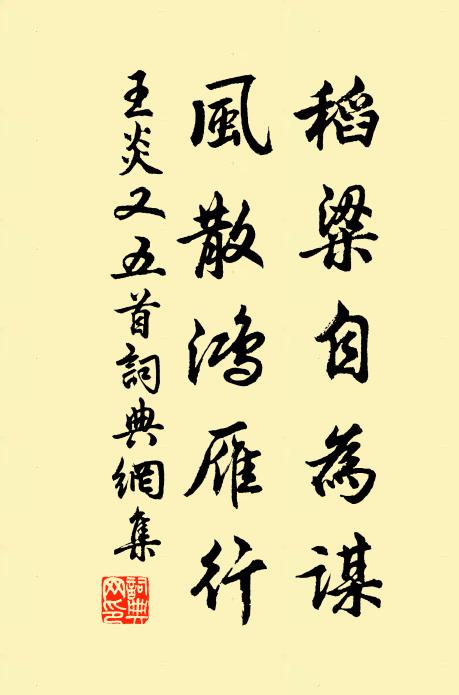 稻粱自為謀
風散鴻雁行
王炎又五首詞典網集
詞典
网印